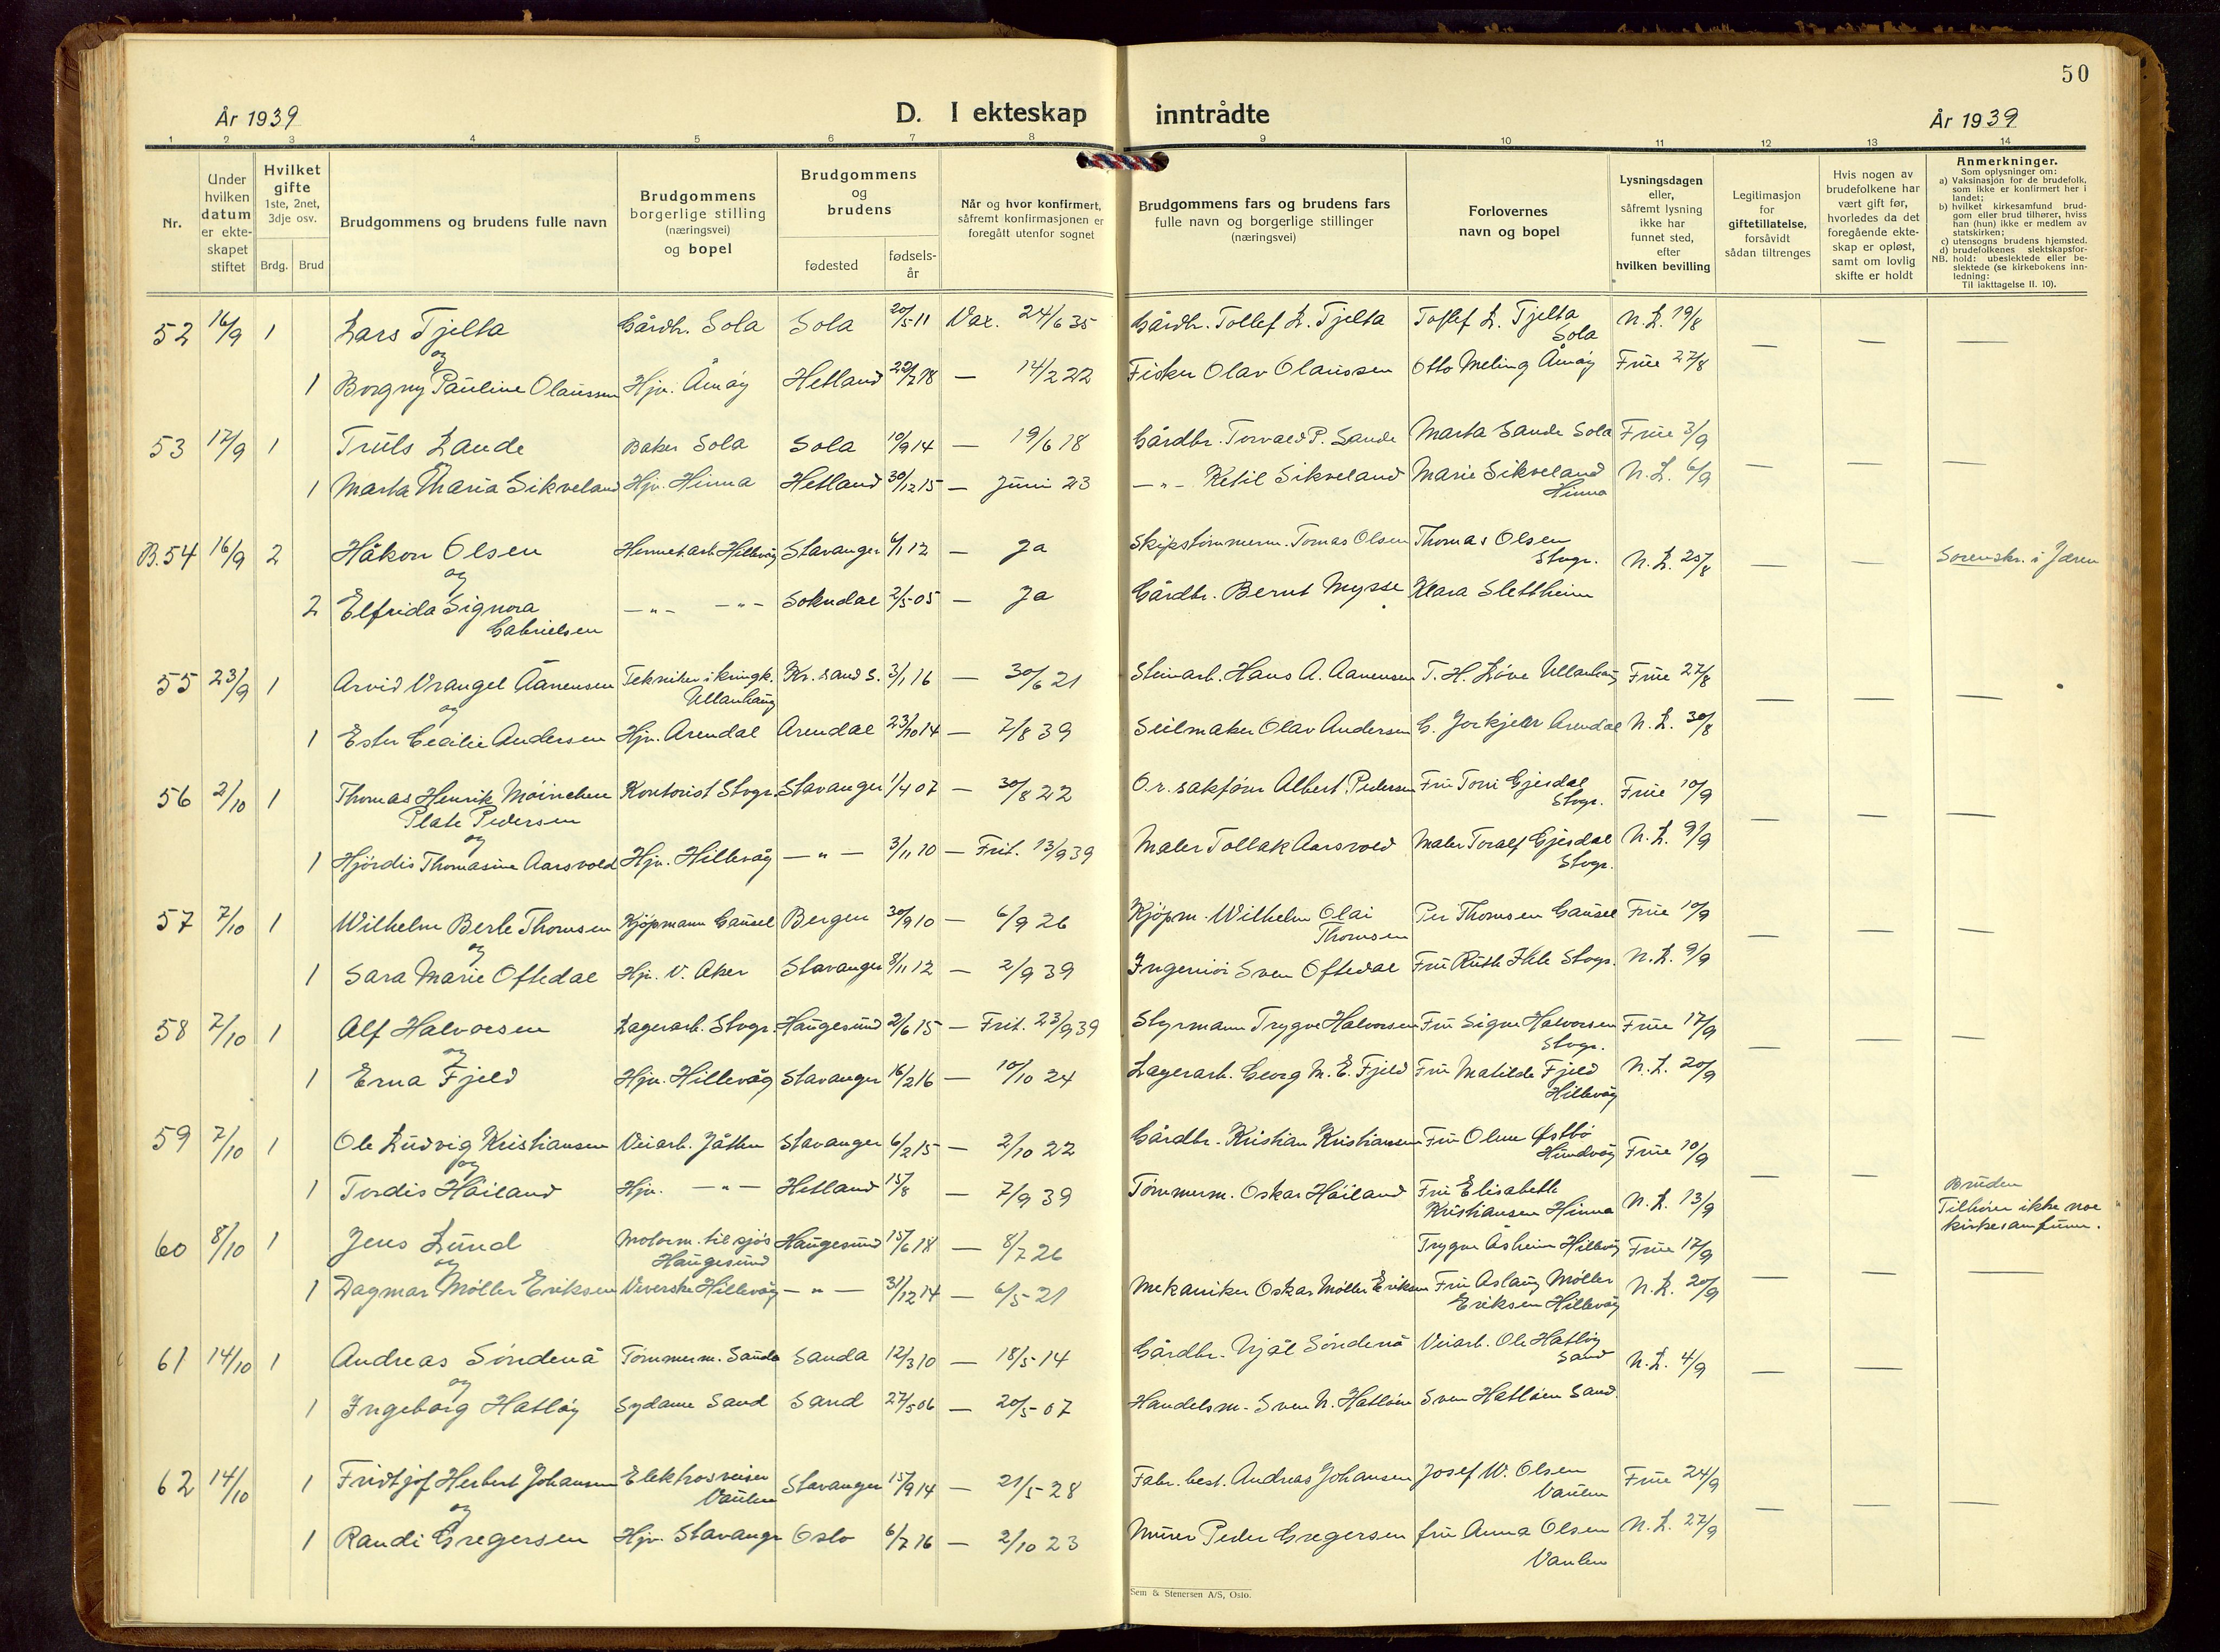 50
År 1939
D. I ekteskap inntrådte
År 1939
1 2 3 4 5 6 7 8 9 10 11 12 13 14
Nr.
Under hvilken datum er ekteskapet stiftet
Hvilket gifte 1ste, 2net, 3dje osv.
Brdg. Brud
Brudgommens og brudens fulle navn
Brudgommens borgerlige stilling (næringsvei) og bopel
Brudgommens og brudens
fødested
fødselsår
Når og hvor konfirmert, såfremt konfirmasjonen er foregått utenfor sognet
Brudgommens fars og brudens fars fulle navn og borgerlige stillinger (næringsvei)
Forlovernes navn og bopel
Lysningsdagen eller, såfremt lysning ikke har funnet sted, efter hvilken bevilling
Legitimasjon for giftetillatelse, forsåvidt sådan tiltrenges
Hvis nogen av brudefolkene har vært gift før, hvorledes da det foregående ekteskap er opløst, samt om lovlig skifte er holdt
Anmerkninger.
Som oplysninger om:
a) Vaksinasjon for de brudefolk, som ikke er konfirmert her i landet;
b) hvilket kirkesamfund brudgom eller brud tilhører, hviss han (hun) ikke er medlem av statskirken;
c) utensogns brudens hjemsted.
d) brudefolkenes slektskapsforhold: ubeslektede eller beslektede (se kirkebokens innledning:
NB.
Til iakttagelse II. 10).
52 16/9 1 Lars Tjelta Gårdbr. Sola Sola 20/5 11 Vax. 24/6 35 Gårdbr. Tollef L. Tjelta Tollef L. Tjelta Sola N.L. 19/8 — — —
og
1 Borgny Pauline Olaussen Hjv. Åmøy Hetland 22/7 18 — 14/2 22 Fisker Olav Olaussen Otto Meling Åmøy Frue 27/8
53 17/9 1 Truls Sande Baker Sola Sola 10/9 14 — 19/6 18 Gårdbr. Torvald P. Sande Marta Sande Sola Frue 3/9 — — —
og
1 Marta Maria Sikveland Hjv. Hinna Hetland 30/12 15 — Juni 23 —"— Ketil Sikveland Marie Sikveland Hinna N.L. 6/9
B.54 16/9 2 Håkon Olsen Hermet.arb. Hillevåg Stavanger 6/1 12 — Ja Skipstømmerm. Tomas Olsen Thomas Olsen Stvgr. N.L. 25/8 — — Sorenskr. i Jæren
og
2 Elfrida Signora Gabrielsen —"— —"— Sokndal 2/5 05 — Ja Gårdbr. Bernt Mysse Klara Slettheim
55 23/9 1 Arvid Vrangel Åanensen Tekniker i kringk. Ullanhaug Kr. sand S. 3/1 16 — 30/6 21 Steinarb. Hans A. Aanensen T. H. Løve Ullanhaug Frue 27/8 — — —
og
1 Ester Cecilie Andersen Hjv. Arendal Arendal 23/10 14 — 7/8 39 Seilmaker Olav Andersen G. Jorkjear Arendal N.L. 30/8
56 2/10 1 Thomas Henrik Møinichen Plate Pedersen Kontorist Stvgr. Stavanger 1/4 07 — 30/8 22 O.r. sakfører Albert Pedersen Fru Toni Gjesdal Stvgr. Frue 10/9 — — —
og
1 Hjørdis Thomasine Aarsvold Hjv. Hillevåg —"— 3/11 10 — Frit. 13/9 39 Maler Tollak Aarsvold Maler Toralf Gjesdal Stvgr. N.L. 9/9
57 7/10 1 Wilhelm Berle Thomsen Kjøpmann Gausel Bergen 30/9 10 — 6/9 26 Kjøpm. Wilhelm Olai Thomsen Per Thomsen Gausel Frue 10/9 — — —
og
1 Sara Marie Oftedal Hjv. V. Aker Stavanger 8/11 12 — 2/9 39 Ingeniør Sven Oftedal Fru Ruth Stvgr. N.L. 9/9
58 7/10 1 Alf Halvorsen Lagerarb. Stvgr. Haugesund 2/6 15 — Frit. 23/9 39 Styrmann Trygve Halvorsen Fru Signe Halvorsen Stvgr. Frue 17/9 — — —
og
1 Erna Fjeld Hjv. Hillevåg Stavanger 16/2 16 — 10/10 24 Lagerarb. Georg M. E. Fjeld Fru Matilde Fjeld Hillevåg N.L. 20/9
59 7/10 1 Ole Ludvig Kristiansen Veiarb. Jåtten Stavanger 6/2 15 — 2/10 22 Gårdbr. Kristian Kristiansen Fru Olene Østbø Hundvåg Frue 10/9 — —
og
1 Tordis Høiland Hjv. —"— Hetland 15/8 — 7/9 39 Tømmerm. Oskar Høiland Fru Elisabeth Kristiansen Hinna N.L. 13/9 Bruden Tilhører ikke noe kirkesamfunn.
60 8/10 1 Jens Lund Motorm. til sjøs Haugesund Haugesund 15/6 18 — 8/7 26 Trygve Åsheim Hillevåg Frue 17/9 — — —
og
1 Dagmar Møller Eriksen Veverske Hillevåg —"— 31/12 14 — 6/5 21 Mekaniker Oskar Møller Eriksen Fru Aslaug Møller Eriksen Hillevåg N.L. 20/9
61 14/10 1 Andreas Søndenå Tømmerm. Sauda Sauda 12/3 10 — 18/5 14 Gårdbr. Njål Søndenå Veiarb. Ole Hatløy Sand N.L. 4/9 — —
og
1 Ingeborg Hatløy Sydame Sand Sand 27/5 06 — 20/5 07 Handelsm. Sven N. Hatløen Sven Hatløen Sand.
62 14/10 1 Fridtjof Herbert Johansen Elektrosveiser Vaulen Stavanger 15/9 14 — 21/5 28 Fabr. best. Andreas Johansen Josef W. Olsen Vaulen Frue 24/9 — — —
og
1 Randi Gregersen Hjv. Stavanger Oslo 6/7 16 — 2/10 23 Murer Peder Gregersen fru Anna Olsen Vaulen N.L. 27/9
Sem & Stenersen A/S, Oslo.